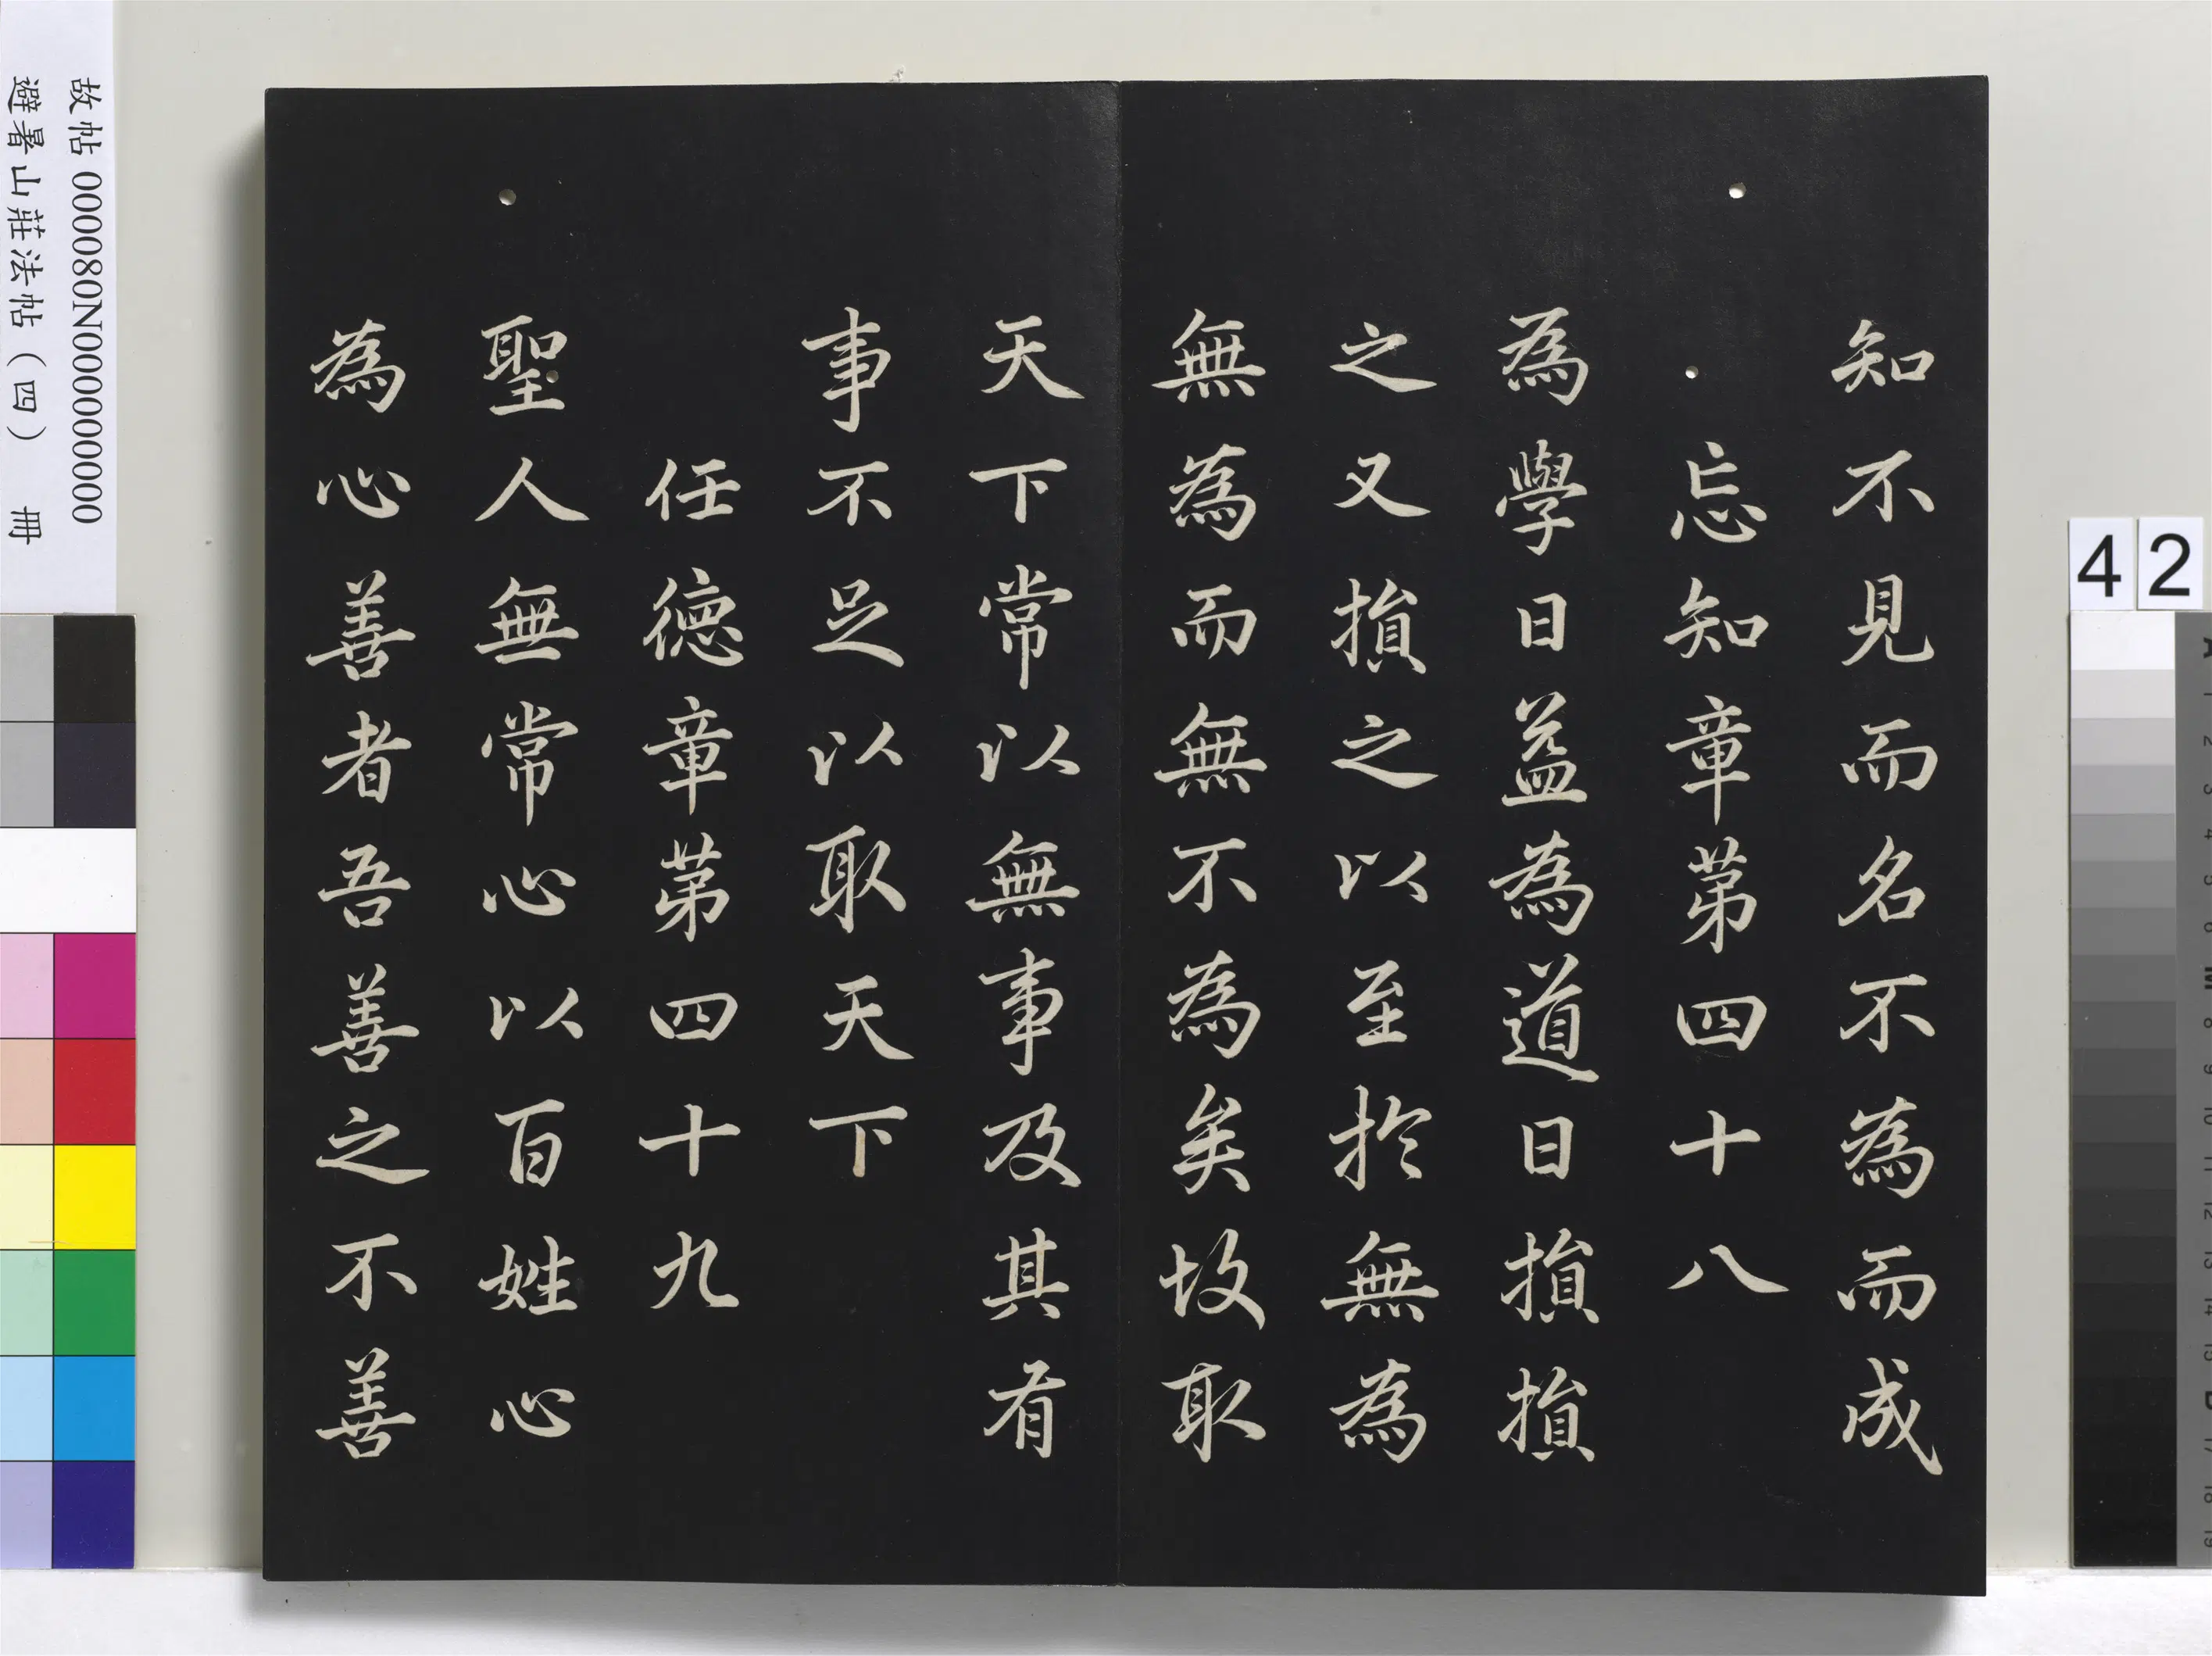 知不見而名不為而成
忘知章苐四十八
為學日益為道日損損
之又損之以至於無為
無為而無不為矣故取
天下常以無事及其有
事不足以取天下
任德章苐四十九
聖人無常心以百姓心
為心善者吾善之不善
故帖 000080N000000000
避暑山莊法帖（四） 冊
42